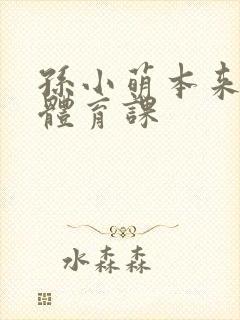 孫小萌本来
體育課
水森森